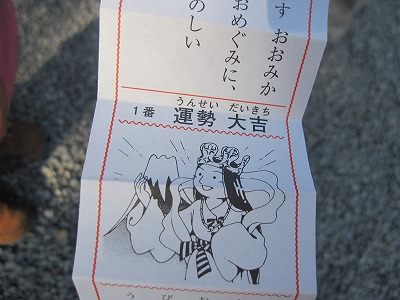 す おおみか
おめぐみに、
のしい
うんせい だいきち
1番 運勢 大吉